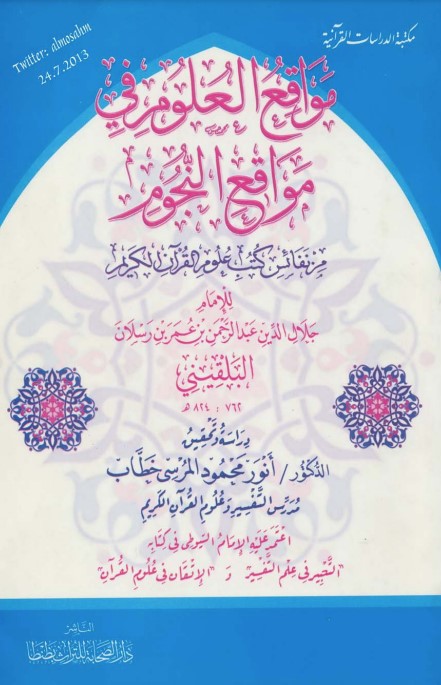 مكتبة الدراسات القرآنية
Twitter: almosahm
24.7.2013
مَوَاقِعُ العُلُومِ فِي
مَوَاقِعِ النُّجُوم
مِن نفَائِس كتُب عُلوم القرآن الكَريم
لِلإمَام
جَلَال الدِّين عَبد الرَّحمٰن بن عُمَر بن رسلان
البُلْقِيني
٧٦٢ : ٨٢٤ هـ
دِرَاسَة وَتحقِيق
الدُّكتُور / أنوَر محمُود المُرسي خَطَّاب
مُدَرِّس التَّفسِير وَعُلُوم القُرآن الكَرِيم
اعتَمَد عَلَيهِ الإمَام السّيُوطي في كتَابِهِ
"التَّحبير في عِلم التَّفسير" وَ "الإتقَان في عُلوم القُرآن"
النَّاشِر
دَار الصَّحَابَة للتُّرَاث بطَنطَا